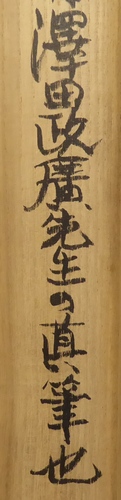 澤田政廣先生の真筆也